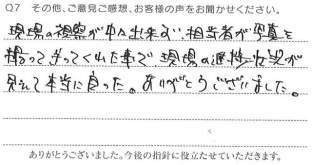 Q7 その他、ご意見ご感想、お客様の声をお聞かせください。
現場の視察が中々出来ない、担当者が写真を
撮って送ってくれた事で、現場の進捗状況が
見えて本当に良かった。ありがとうございました。
ありがとうございました。今後の指針に役立たせていただきます。